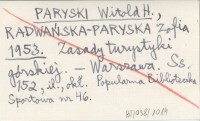 PARYSKI Witold H.,
RADWAŃSKA-PARYSKA Zofia
1953. Zasady turystyki
górskiej. — Warszawa. Ss.
152, il., okł. Popularna Biblioteczka
Sportowa nr 46.